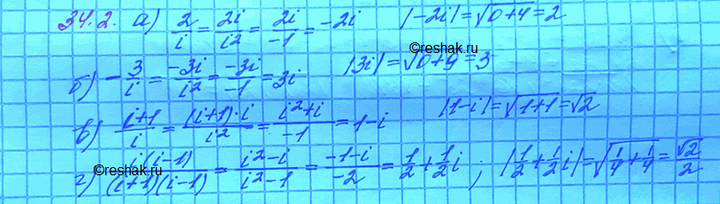 34.2. а) 2/i = 2i/i2 = 2i/-1 = -2i |-2i| = √0+4 = 2
©reshak.ru
б) -3/i = -3i/i² = -3i/-1 = 3i |3i| = √0+9 = 3
в) i+1/i = (i+1)·i/i² = i²+i/-1 = 1-i |1-i| = √1+1 = √2
г) i(i-1)/(i+1)(i-1) = i²-i/i²-1 = -1-i/-2 = 1/2 + 1/2 i ; |1/2 + 1/2 i| = √1/4 + 1/4 = √2/2
©reshak.ru